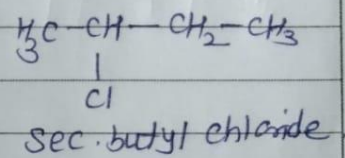 H₃C-CH-CH₂-CH₃
|
Cl
Sec. butyl chloride